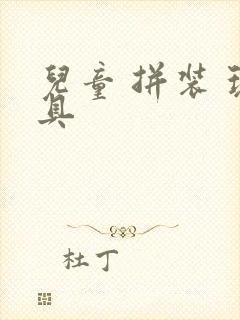 兒童拼装玩
具
杜丁